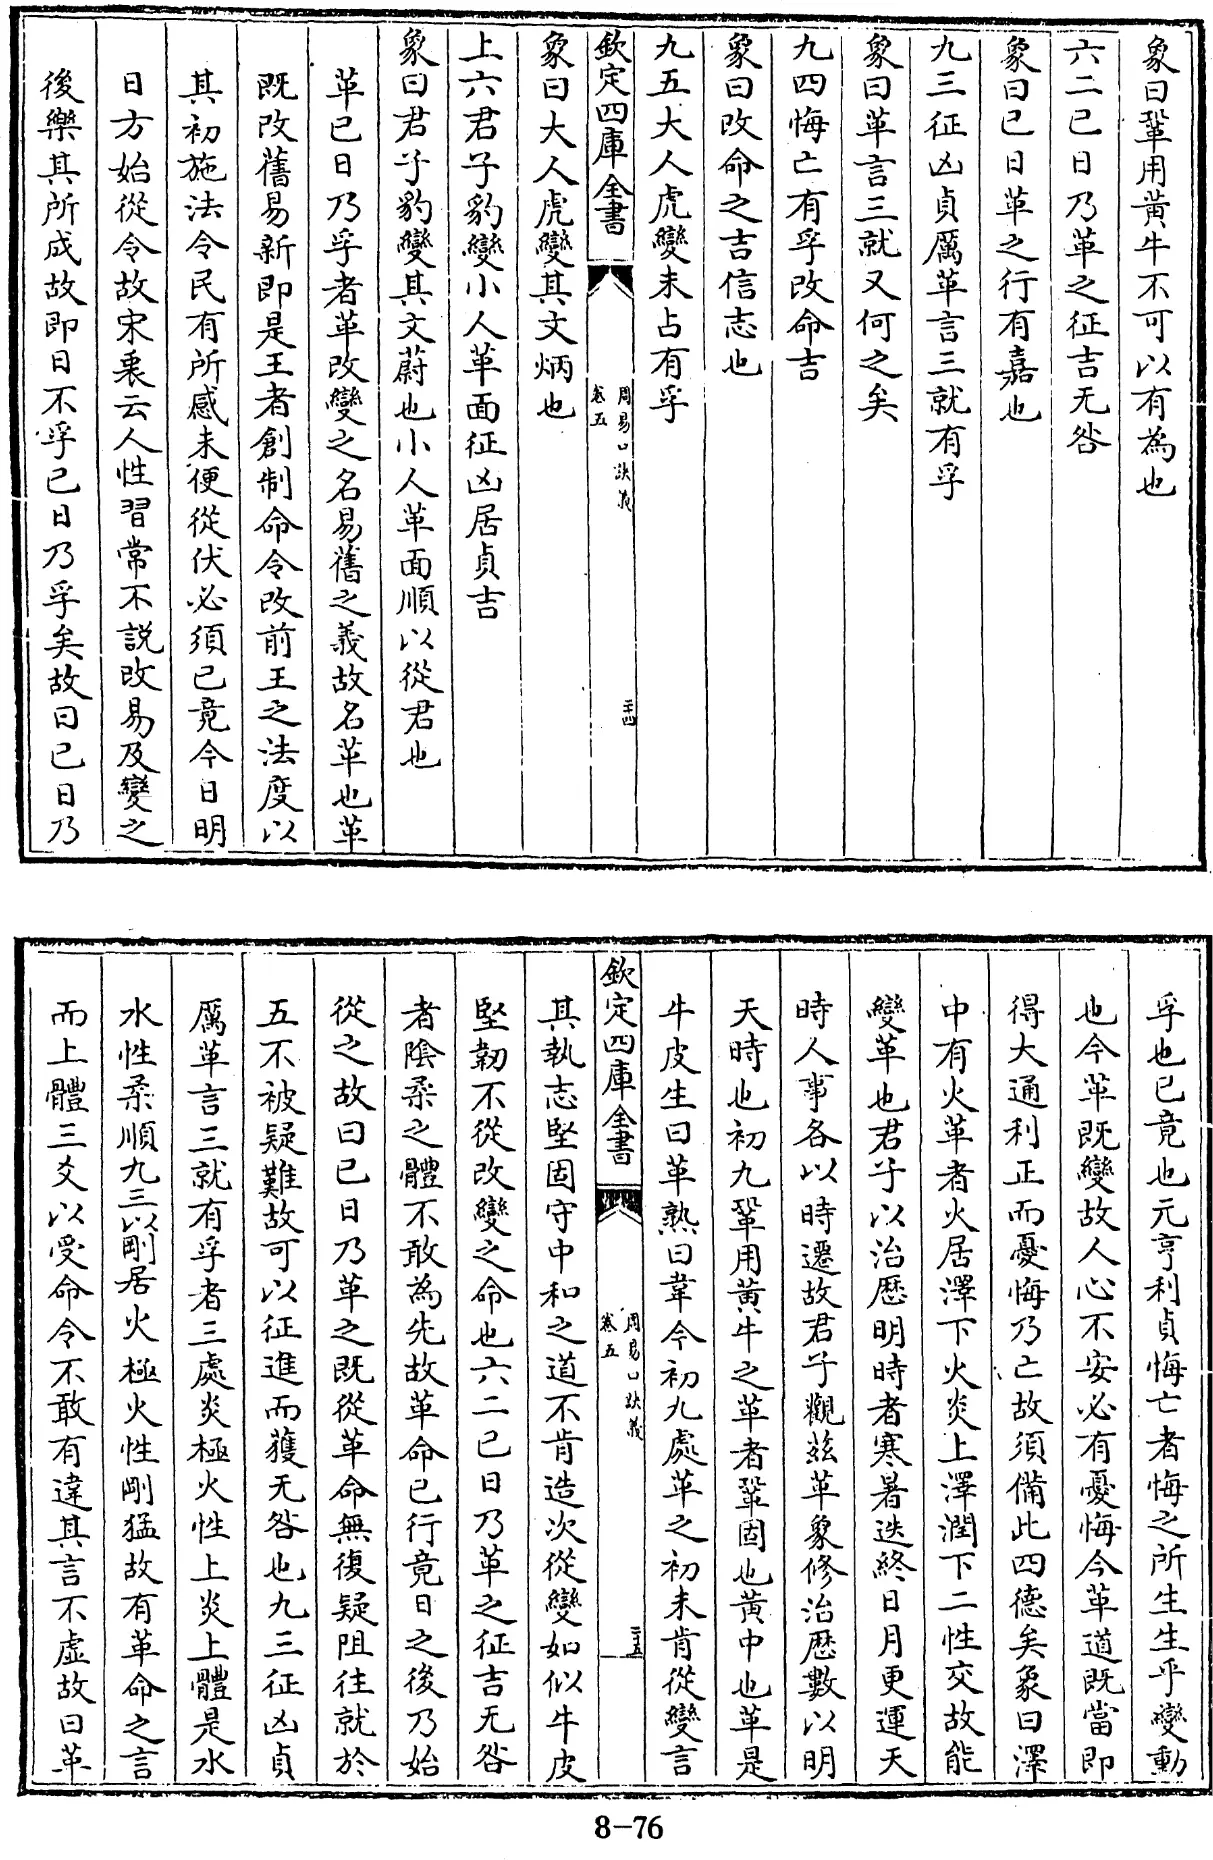 象曰鞏用黄牛不可以有為也
六二已日乃革之征吉无咎
象曰已日革之行有嘉也
九三征凶貞厲革言三就有孚
象曰革言三就又何之矣
九四悔亡有孚改命吉
象曰改命之吉信志也
九五大人虎變未占有孚
欽定四庫全書
周易口訣義
卷五
二十四
象曰大人虎變其文炳也
上六君子豹變小人革面征凶居貞吉
象曰君子豹變其文蔚也小人革面順以從君也
革已日乃孚者革改變之名易舊之義故名革也革
既改舊易新即是王者創制命令改前王之法度以
其初施法令民有所感未便從伏必須已竟今日明
日方始從令故宋衷云人性習常不説改易及變之
後樂其所成故即日不孚已日乃孚矣故曰已日乃
孚也已竟也元亨利貞悔亡者悔之所生生乎變動
也今革既變故人心不安必有憂悔今革道既當即
得大通利正而憂悔乃亡故須備此四德矣象曰澤
中有火革者火居澤下火炎上澤潤下二性交故能
變革也君子以治歴明時者寒暑迭終日月更運天
時人事各以時遷故君子觀兹革象修治歴數以明
天時也初九鞏用黄牛之革者鞏固也黄中也革是
牛皮生曰革熟曰韋今初九處革之初未肯從變言
欽定四庫全書
周易口訣義
卷五
二十五
其執志堅固守中和之道不肯造次從變如似牛皮
堅韌不從改變之命也六二已日乃革之征吉无咎
者陰柔之體不敢為先故革命已行竟日之後乃始
從之故曰已日乃革之既從革命無復疑阻往就於
五不被疑難故可以征進而獲无咎也九三征凶貞
厲革言三就有孚者三處炎極火性上炎上體是水
水性柔順九三以剛居火極火性剛猛故有革命之言
而上體三爻以受命令不敢有違其言不虛故曰革
8-76